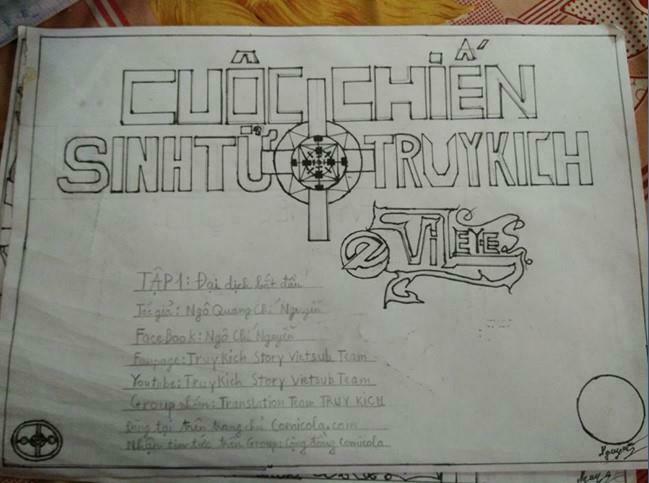 CUỘC CHIẾN
SINH TỬ TRUY KÍCH
EVIL EYES
TẬP 1: Đại dịch bắt đầu
Tác giả: Ngô Quang Chí Nguyễn
Facebook: Ngô Chí Nguyễn
Fanpage: Truy Kích Story Vietsub Team
Youtube: Truy Kích Story Vietsub Team
Group nhóm: Translation Team TRUY KÍCH
Đăng tại trên trang chủ Comicola.com
Nhận tin tức trên Group: Cộng đồng Comicola